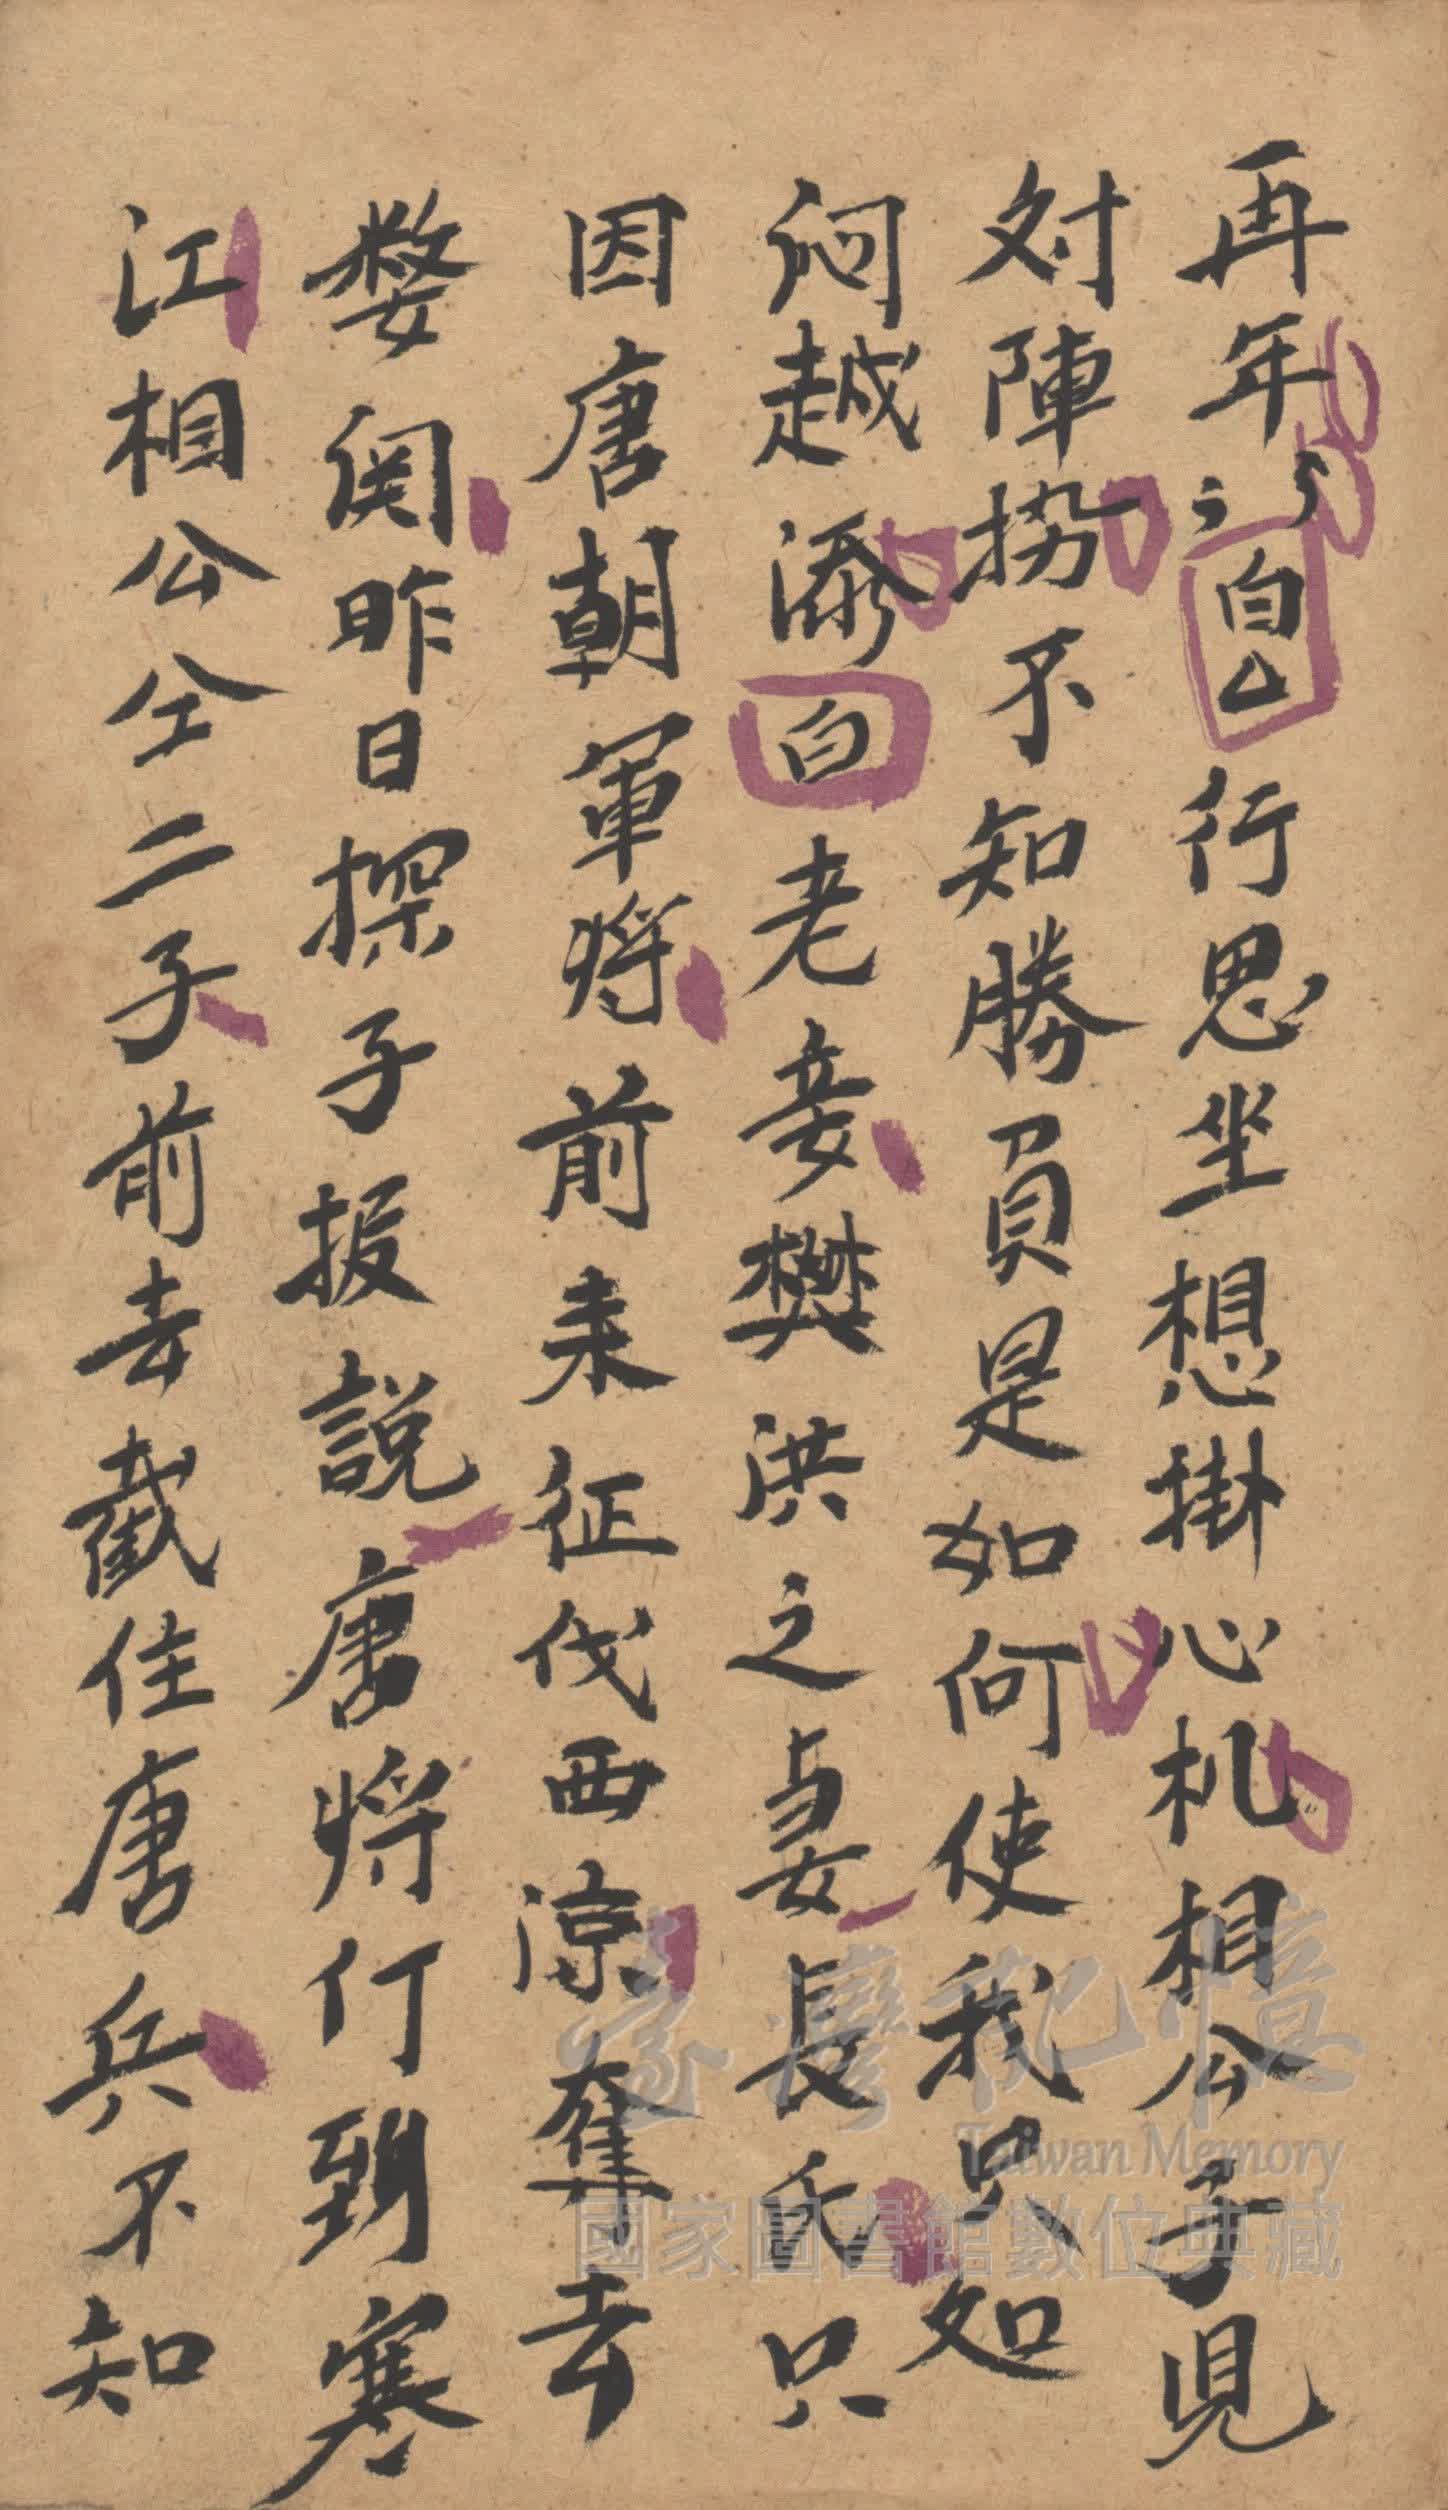 再年〻白厶行思坐想掛心机相公子児
対陣拐不知勝負是如何使我只如
问越添白老妾樊洪之妻長氏只
因唐朝軍將前来征伐西涼奪去
婺関昨日探子报説唐將仃到寒
江相公仝二子前去截住唐兵不知
Taiwan Memory
國家圖書館數位典藏
臺灣記憶